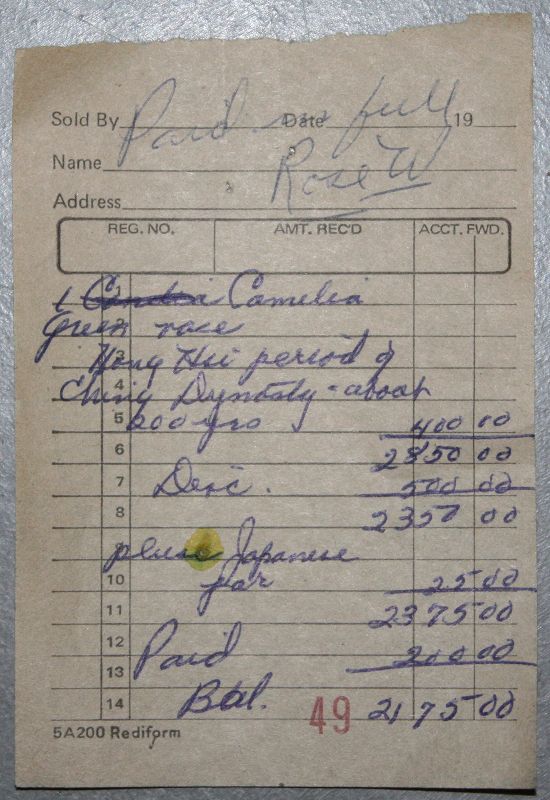 Paid in full
Sold By Date 19
Name Rose W
Address
REG. NO. AMT. REC'D ACCT. FWD.
1 1 Camelia
2 Green vase
3 Hong Hsi period of
4 Ching Dynasty - about
5 200 yrs 400 00
6 2850 00
7 Disc. 500 00
8 2350 00
9 pluse Japanese
10 jar 25 00
11 2375 00
12 Paid 200 00
13
14 Bal. 49 2175 00
5A200 Rediform